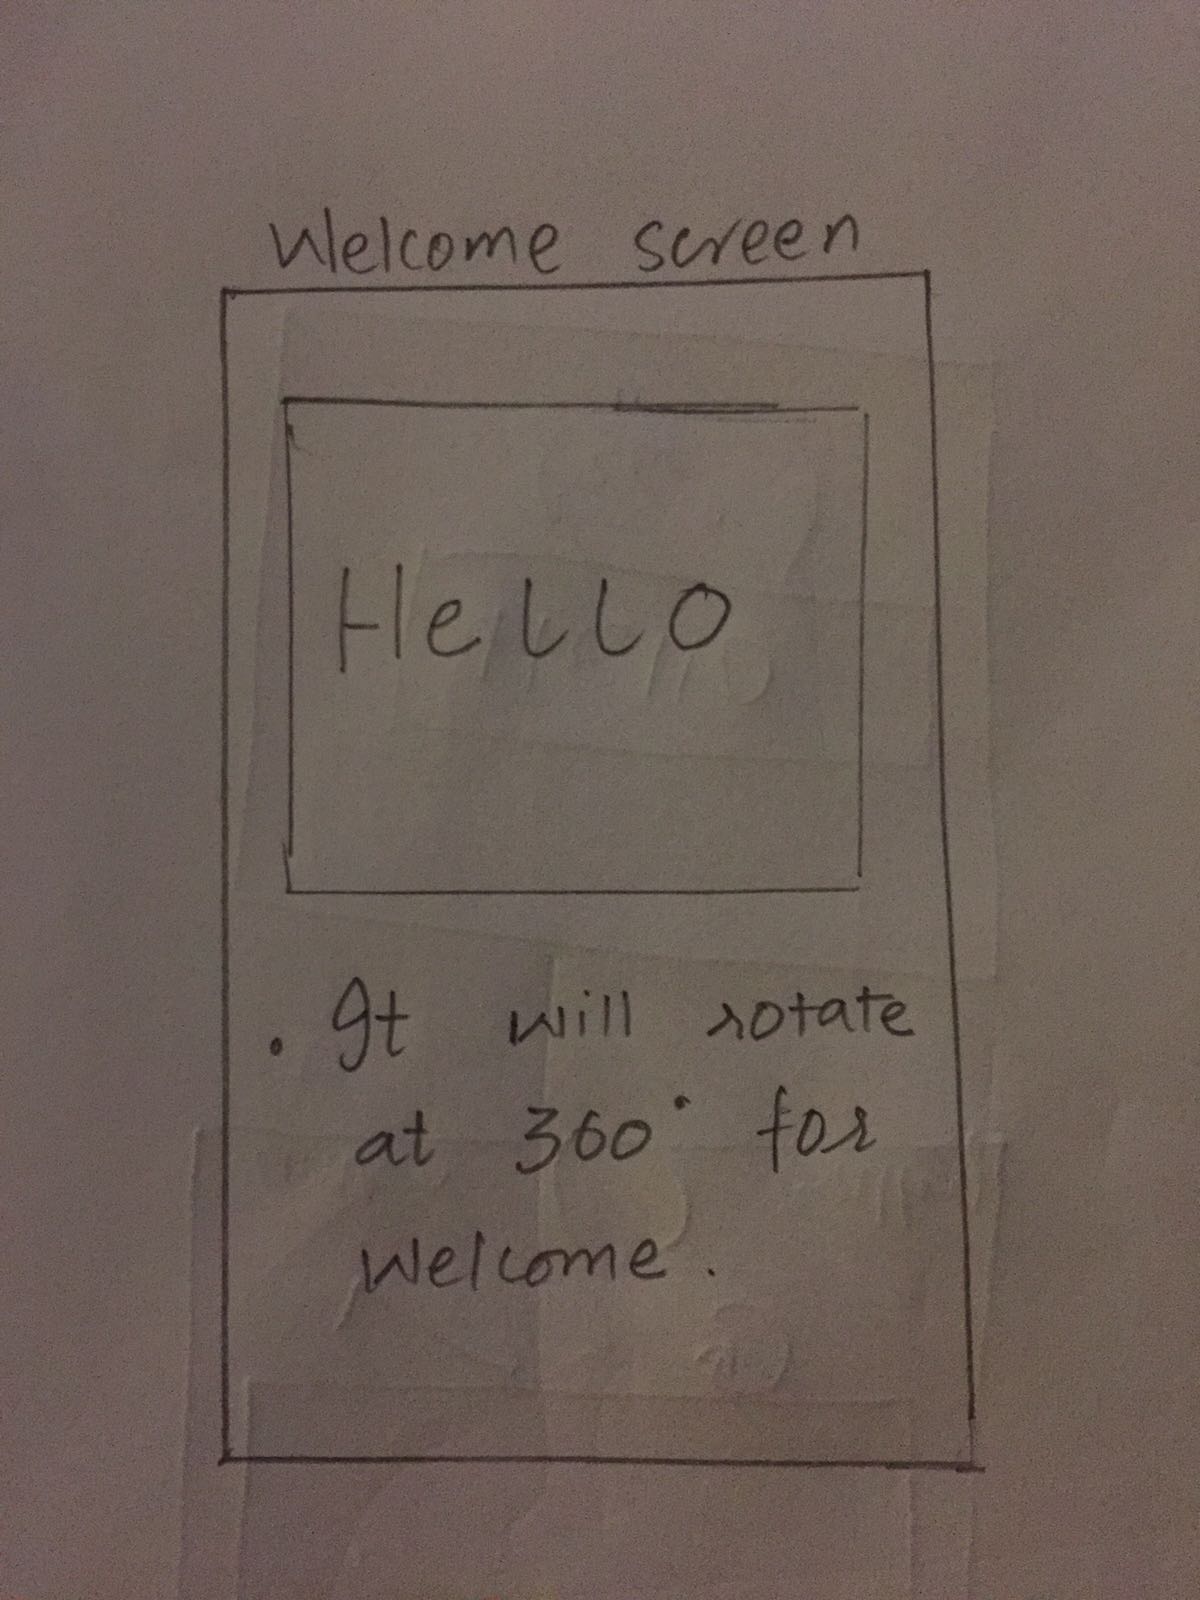 Welcome screen
HeLLO
. It will rotate
at 360° for
Welcome.